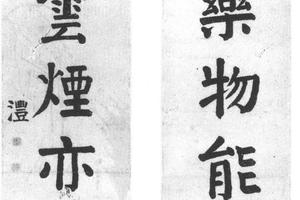 藥物能
雲煙亦
澧